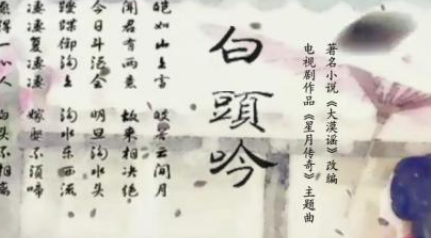 著名小说《大漠谣》改编
电视剧作品《星月传奇》主题曲
白頭吟
皑如山上雪 皎若云间月
闻君有两意 故来相决绝
今日斗酒会 明旦沟水头
蹀躞御沟上 沟水东西流
凄凄复凄凄 嫁娶不须啼
得一心人 白头不相离